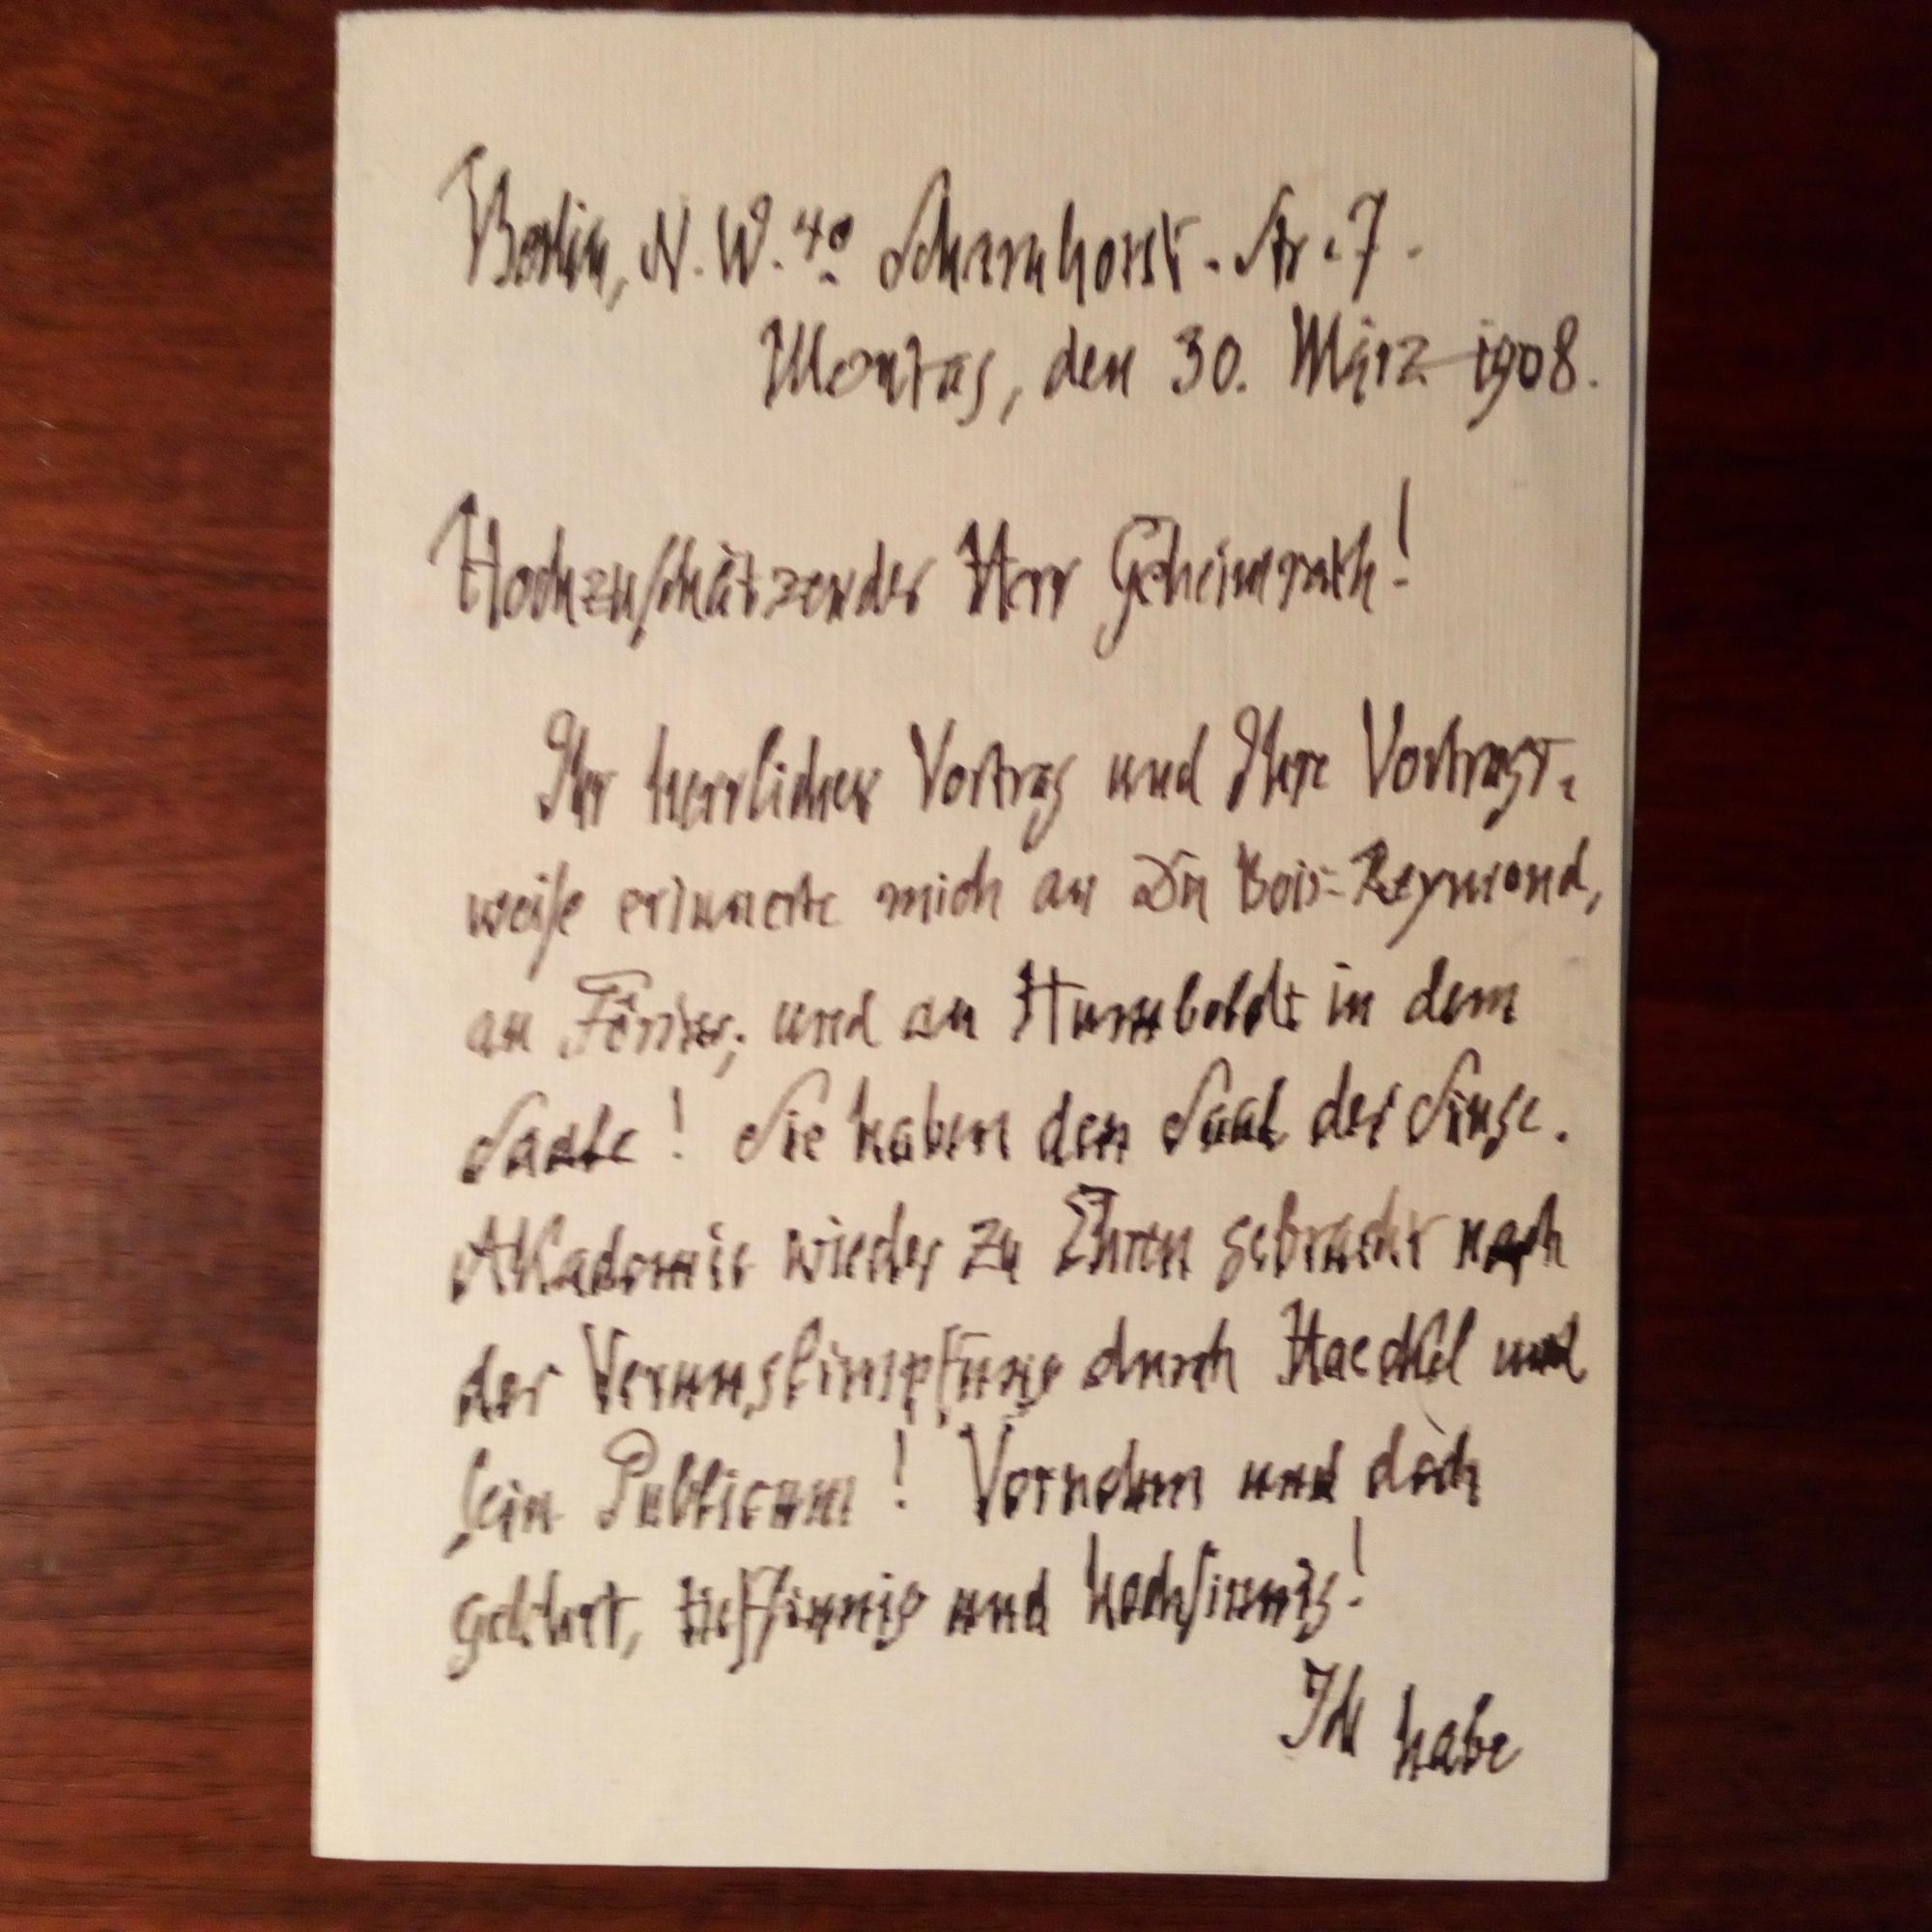 Berlin, N. W. 40 Scharnhorst-Str. 7.
Montag, den 30. März 1908.
Hochzuschätzender Herr Geheimrath!
Ihr herrlicher Vortrag und Ihre Vortrags-
weise erinnerte mich an Du Bois-Reymond,
an Förster, und an Humboldt in dem
Saale! Sie haben den Saal der Singe-
Akademie wieder zu Ehren gebracht nach
der Verunglimpfung durch Haeckel und
sein Publicum! Vornehm und doch
gelehrt, tiefsinnig und hochsinnig!
Ich habe